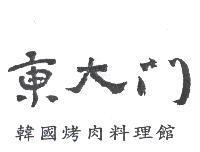 東大门
韓國烤肉料理館